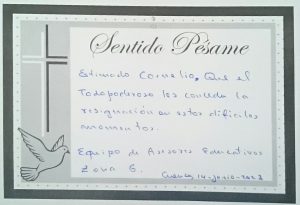 Sentido Pésame
Estimado Cornelio, Que el
Todopoderoso les conceda la
resignación en estos difíciles
momentos.
Equipo de Asesores Educativos
Zona 6.
Cuenca, 14-junio-2023